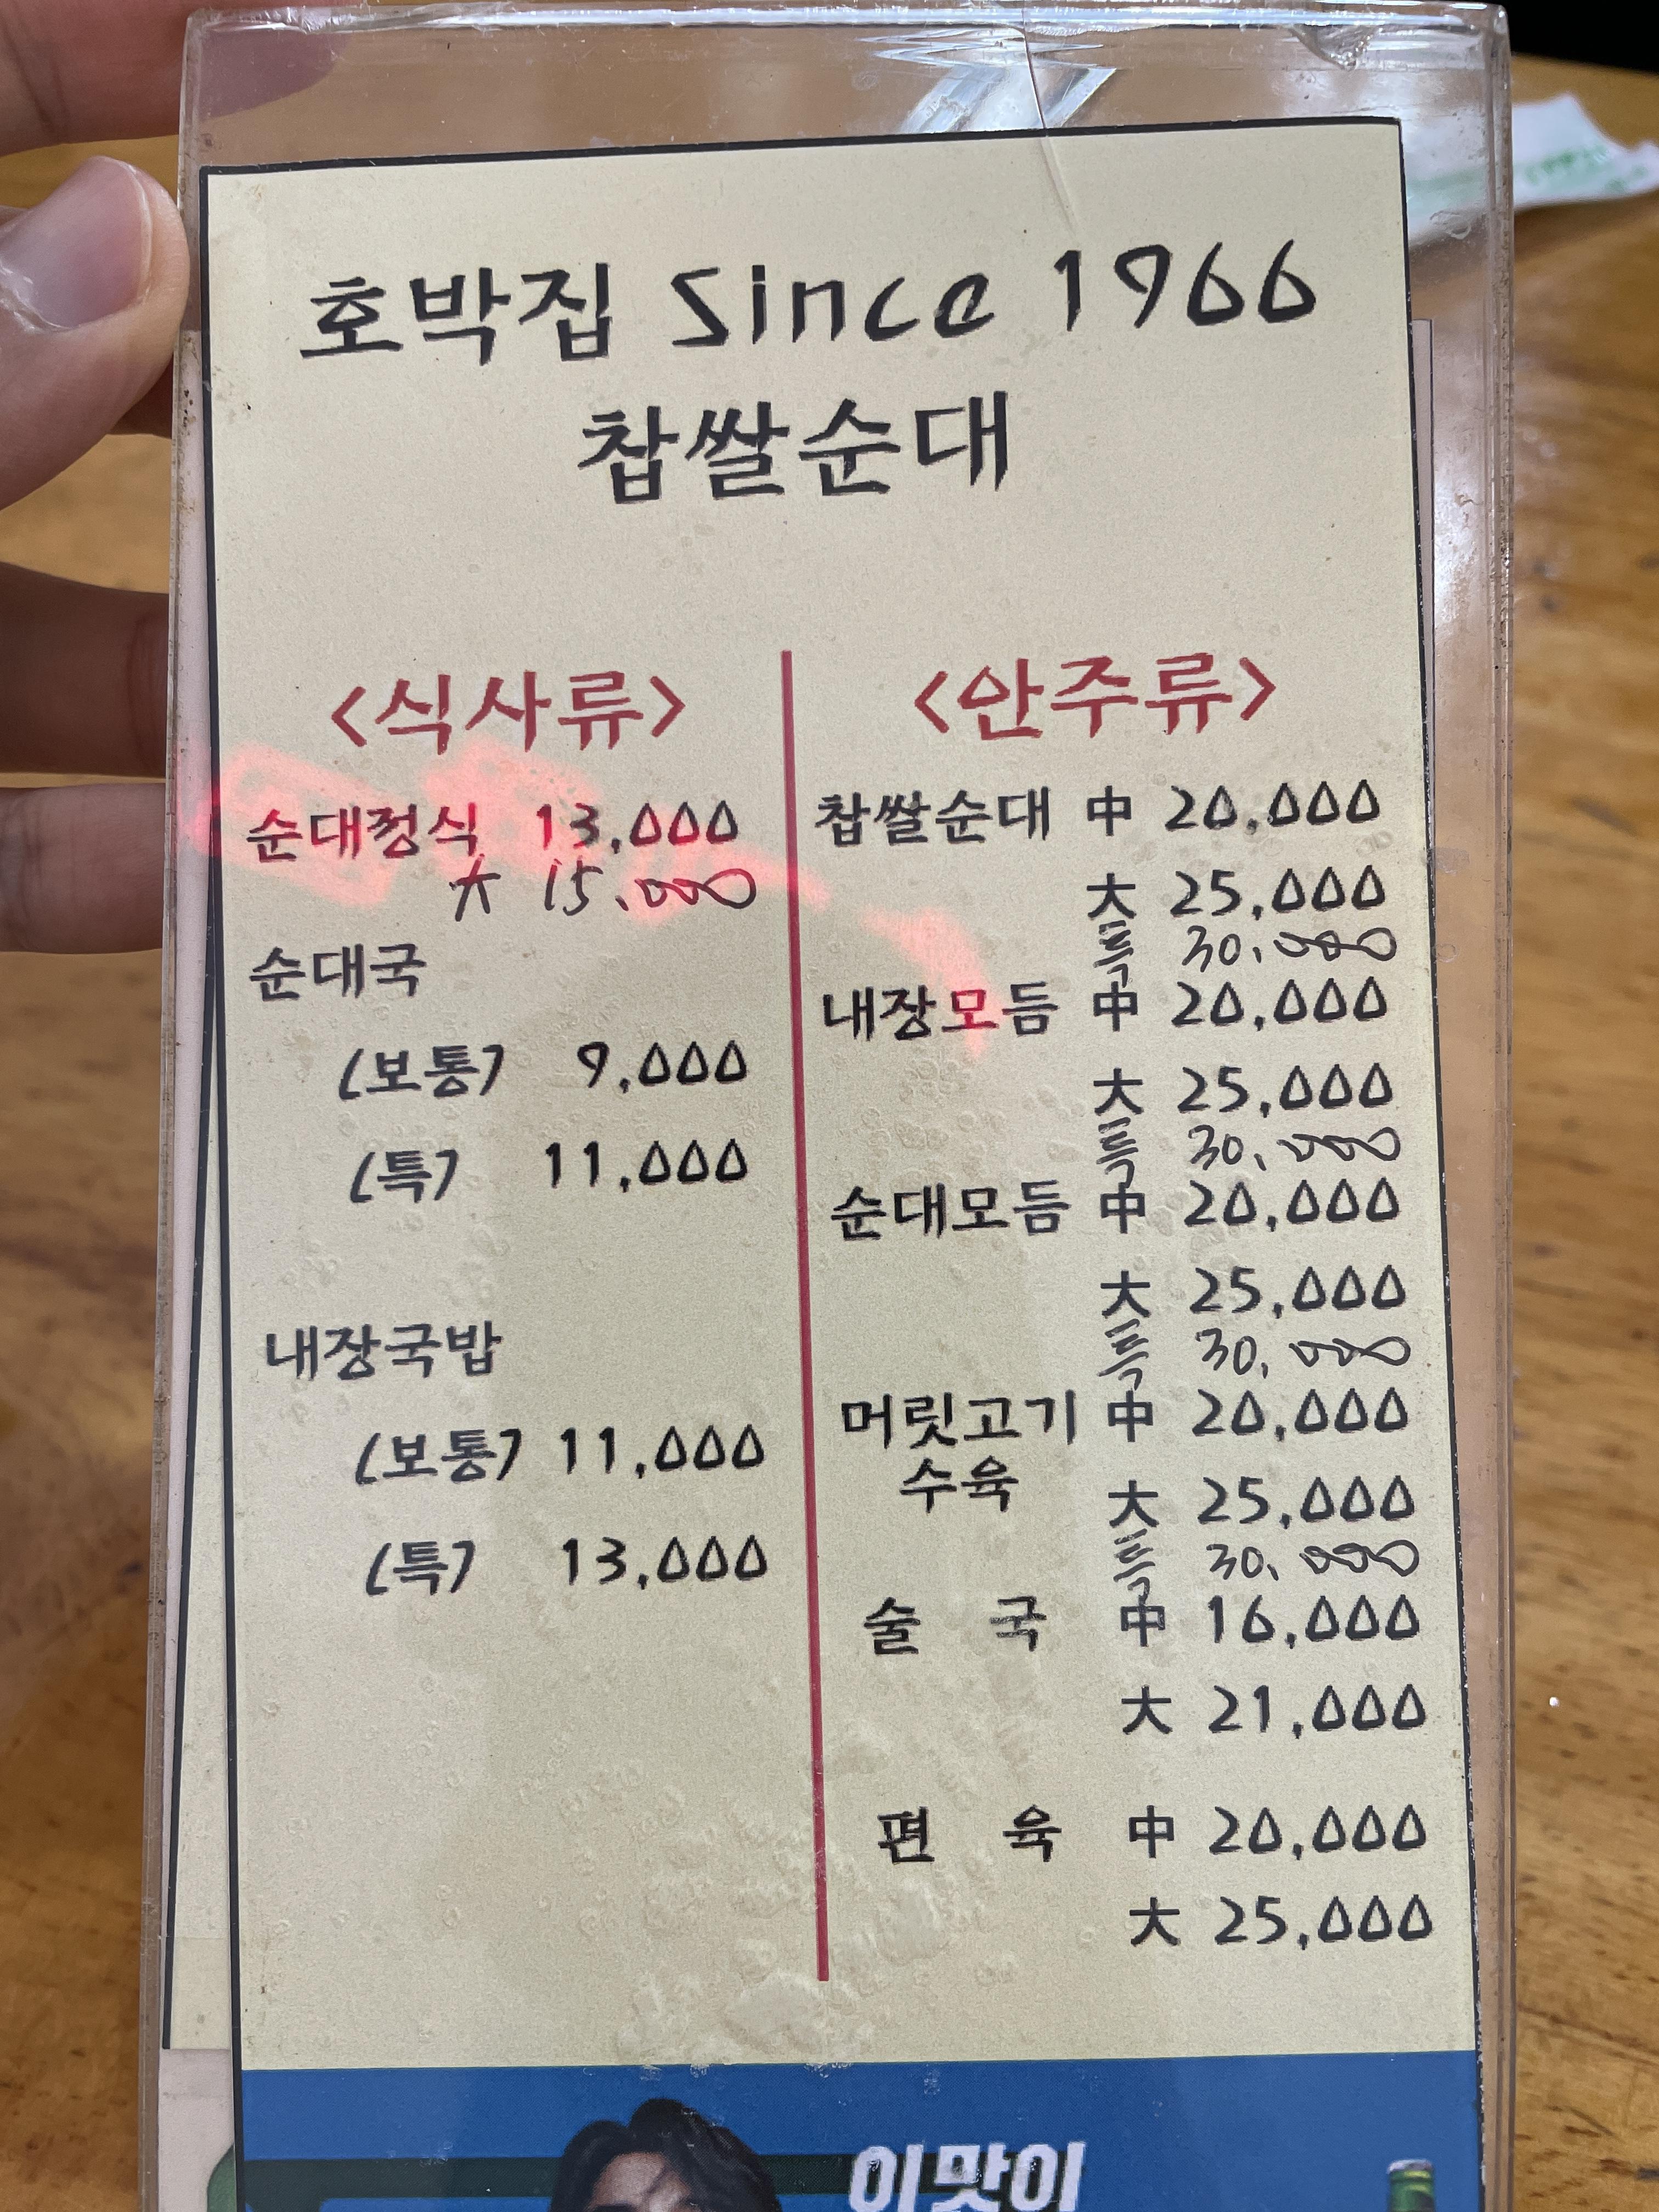 호박집 Since 1966
찹쌀순대
<식사류>
순대정식 13,000
大 15,000
순대국
(보통) 9,000
(특) 11,000
내장국밥
(보통) 11,000
(특) 13,000
<안주류>
찹쌀순대 中 20,000
大 25,000
특 30,000
내장모듬 中 20,000
大 25,000
특 30,000
순대모듬 中 20,000
大 25,000
특 30,000
머릿고기 中 20,000
수육
大 25,000
특 30,000
술 국 中 16,000
大 21,000
편 육 中 20,000
大 25,000
이맛이